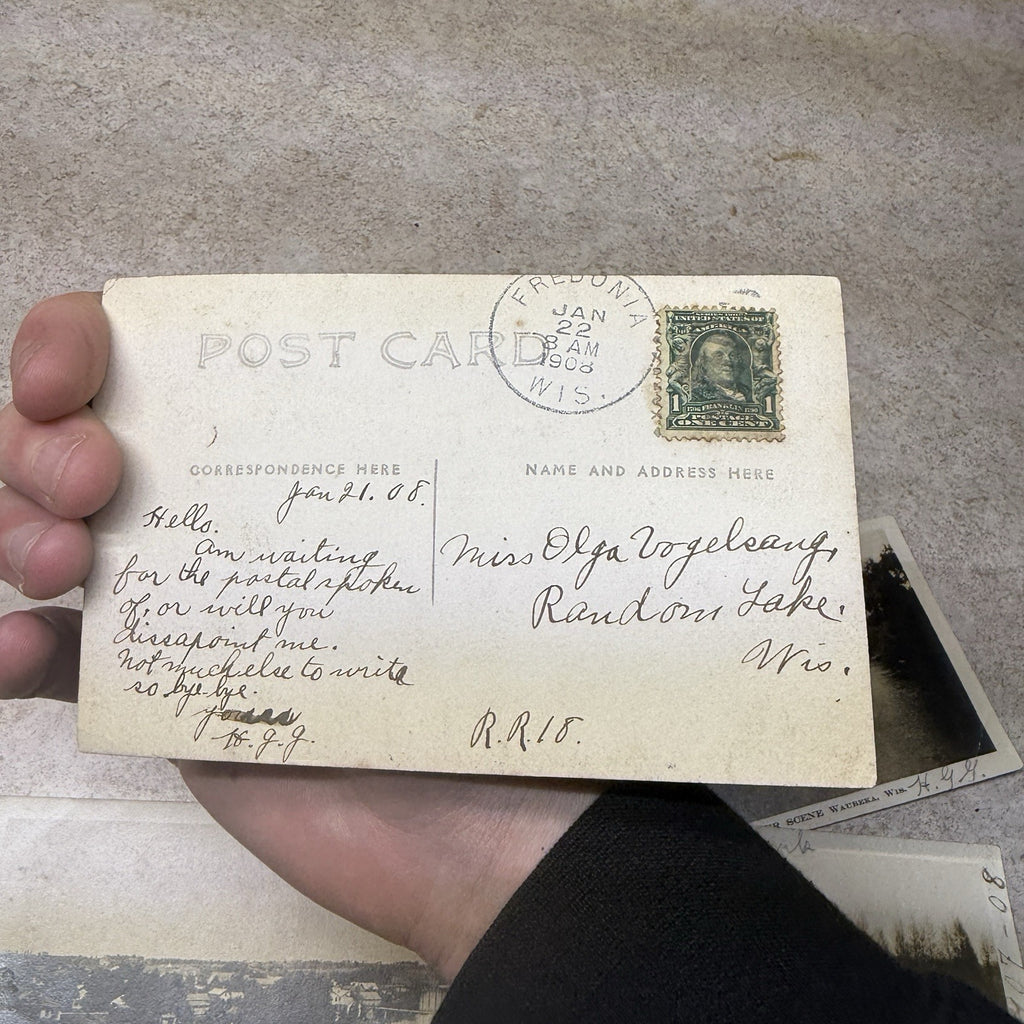 FREDONIA
JAN
22
8 AM
1908
WIS.
POST CARD
UNITED STATES OF
AMERICA
1 FRANKLIN 1
POSTAGE
ONE CENT
CORRESPONDENCE HERE
Jan 21. 08.
Hello.
Am waiting
for the postal spoken
of, or will you
dissapoint me.
Not much else to write
so bye bye.
H. G. G.
NAME AND ADDRESS HERE
Miss Olga Vogelsang,
Random Lake.
Wis.
R.R.18.
SCENE WAUBEKA, WIS. H. G. G.
7-08